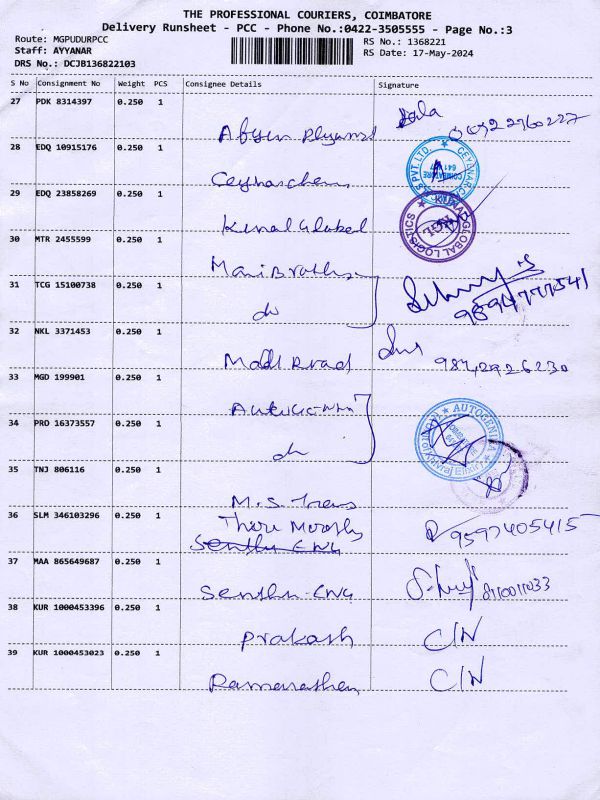 THE PROFESSIONAL COURIERS, COIMBATORE
Delivery Runsheet - PCC - Phone No.:0422-3505555 - Page No.:3
Route: MGPUDURPCC
Staff: AYYANAR
DRS No.: DCJB136822103
RS No.: 1368221
RS Date: 17-May-2024
S No Consignment No Weight PCS Consignee Details Signature
27 PDK 8314397 0.250 1
28 EDQ 10915176 0.250 1
CEYANAR
COIMBATORE
PVT.LTD.
29 EDQ 23858269 0.250 1
Kunal Global
KUNAL GLOBAL LOGISTICS
30 MTR 2455599 0.250 1
31 TCG 15100738 0.250 1
do
32 NKL 3371453 0.250 1
9842926230
33 MGD 199901 0.250 1
34 PRO 16373557 0.250 1
do
AUTOGENIKA
35 TNJ 806116 0.250 1
M.S.
36 SLM 346103296 0.250 1
9597405415
37 MAA 865649687 0.250 1
Senthu ENG
8110011033
38 KUR 1000453396 0.250 1
Prakash C/N
39 KUR 1000453023 0.250 1
C/N